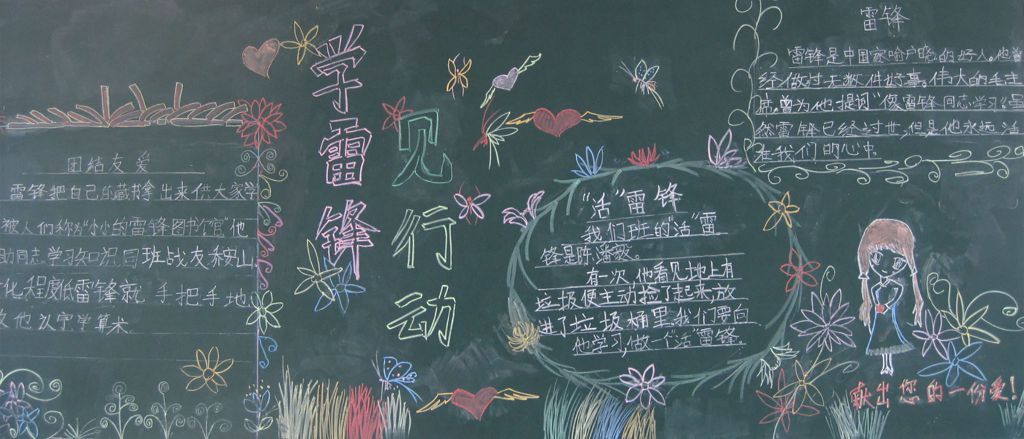 学雷锋
见行动
团结友爱
雷锋把自己的藏书拿出来供大家学
被人们称为“小小的雷锋图书馆”他
助同志学习知识同班战友
化程度低雷锋就手把手地
教他认字学算术
“活”雷锋
我们班的“活”雷
锋是陈
有一次,他看见地上有
垃圾便主动捡了起来放
进了垃圾桶里,我们要向
他学习,做一个活雷锋.
雷锋
雷锋是中国家喻户晓的好人。他曾
经做过无数件好事。伟大的毛主
席曾为他提词“像雷锋同志学习”虽
然雷锋已经过世,但是他永远活
在我们的心中
献出您的一份爱!